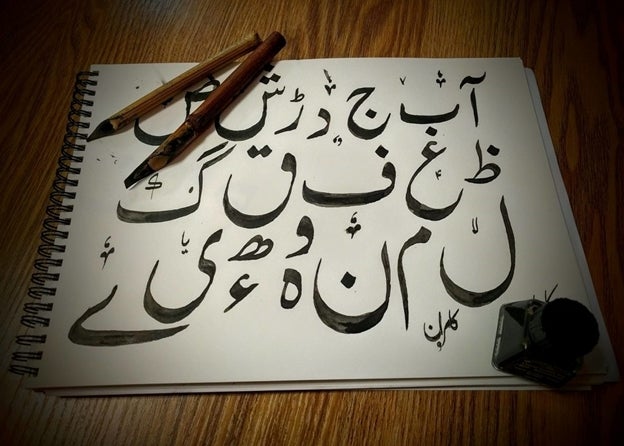 آ ب ج د ڑ ش ض
ظ غ ف ق گ
ل م ن و ہ ھ ء ی ے
کامران